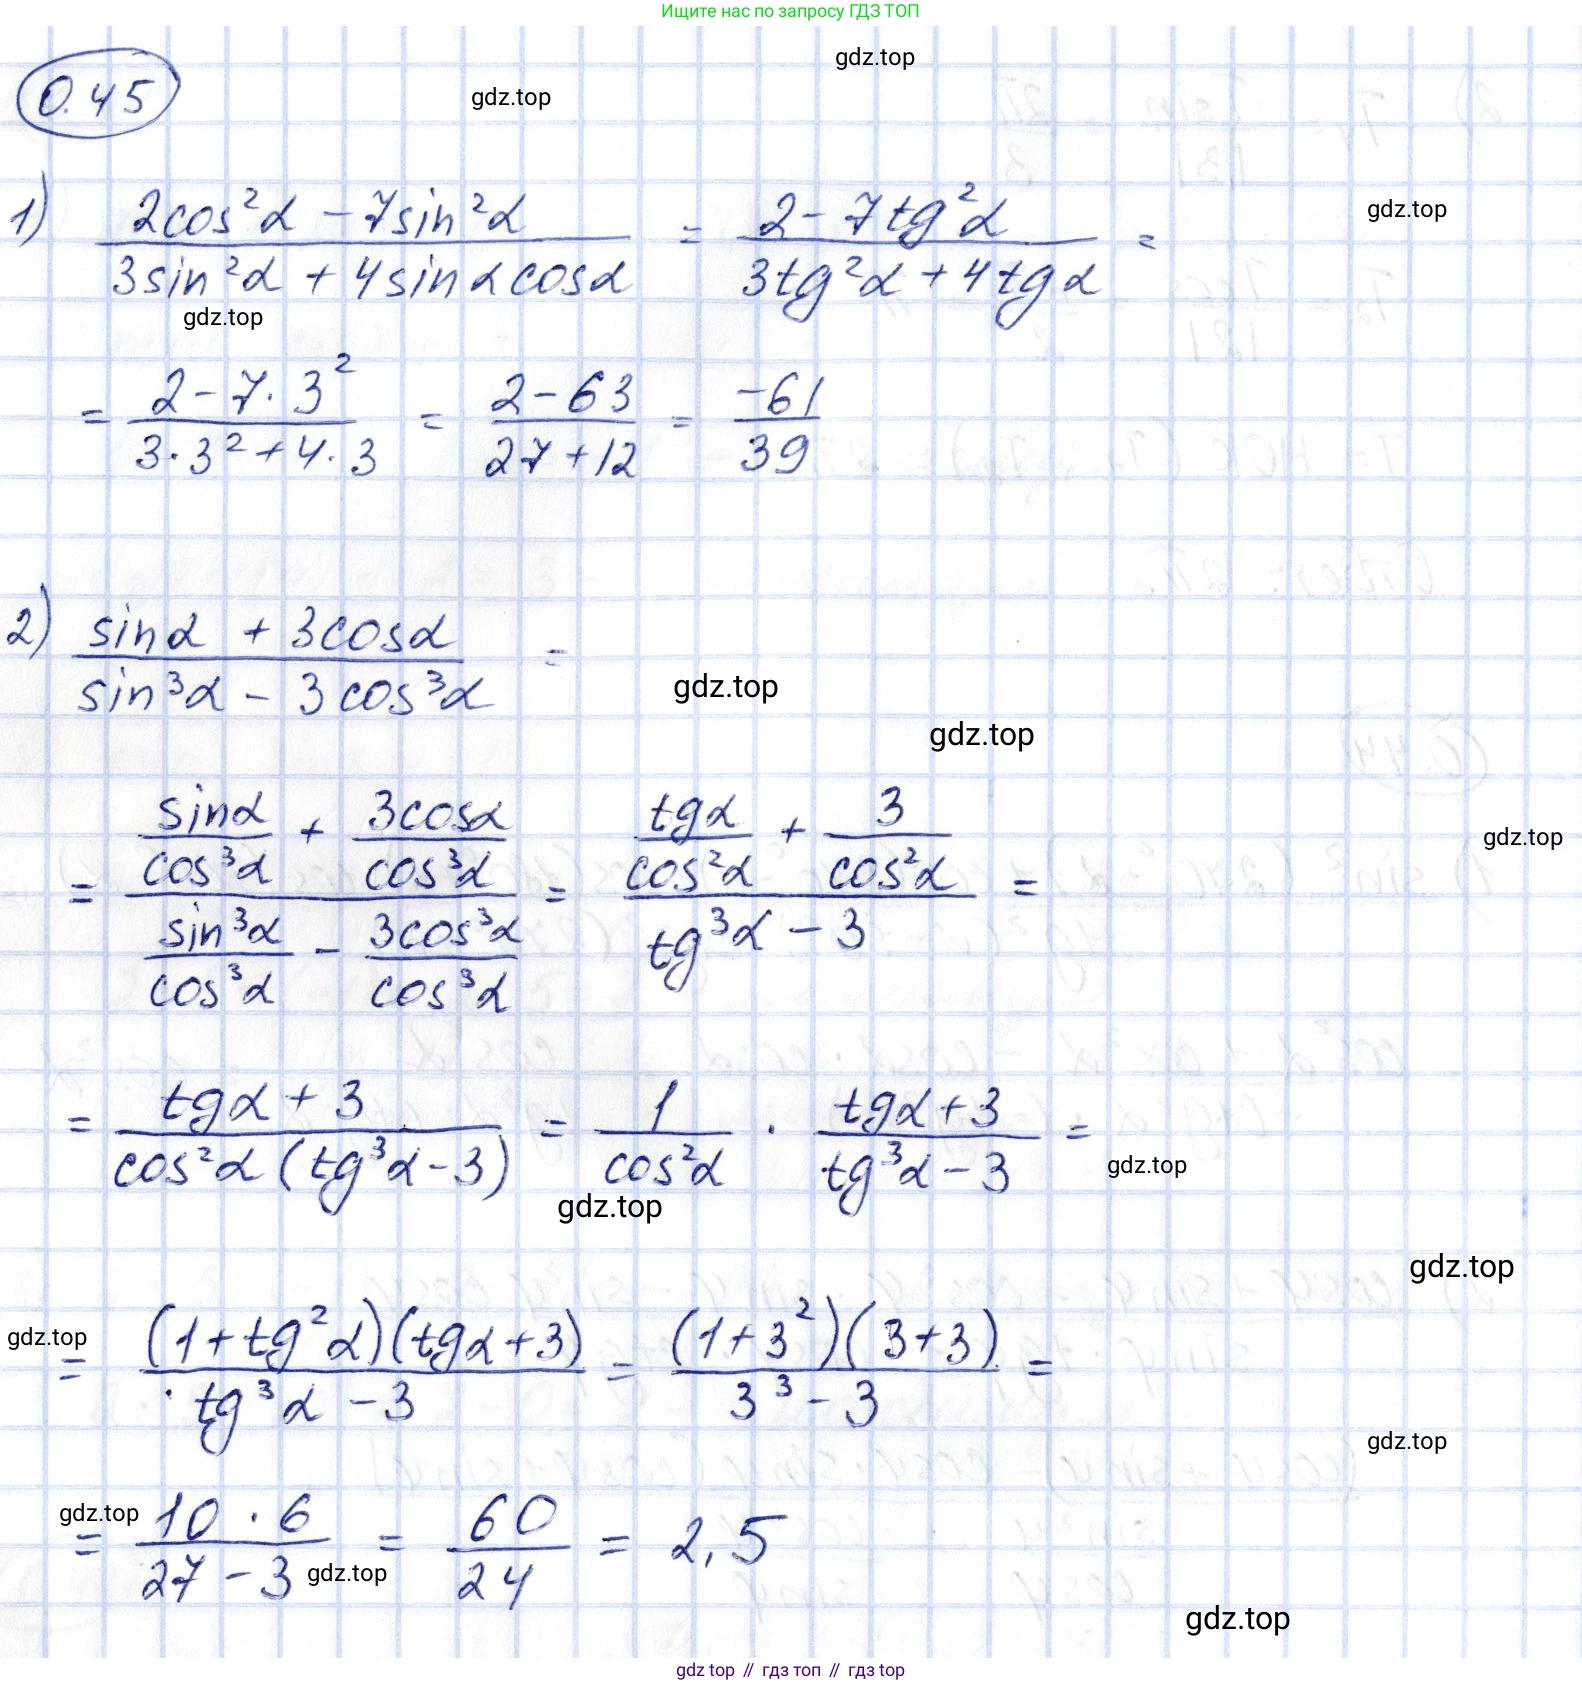 Ищите нас по запросу ГДЗ ТОП
gdz.top
0.45
gdz.top
1) (2cos²α - 7sin²α)/(3sin²α + 4sinαcosα) = (2 - 7tg²α)/(3tg²α + 4tgα) =
gdz.top
gdz.top
= (2 - 7·3²)/(3·3² + 4·3) = (2 - 63)/(27 + 12) = -61/39
2) (sinα + 3cosα)/(sin³α - 3cos³α) =
gdz.top
gdz.top
= (sinα/cos³α + 3cosα/cos³α)/(sin³α/cos³α - 3cos³α/cos³α) = (tgα/cos²α + 3/cos²α)/(tg³α - 3) =
gdz.top
= (tgα + 3)/(cos²α(tg³α - 3)) = 1/cos²α · (tgα + 3)/(tg³α - 3) =
gdz.top
gdz.top
gdz.top
gdz.top
= (1 + tg²α)(tgα + 3)/(tg³α - 3) = (1 + 3²)(3 + 3)/(3³ - 3) =
gdz.top
gdz.top
= (10·6)/(27 - 3) = 60/24 = 2,5
gdz.top
gdz.top
gdz top // гдз топ // gdz top